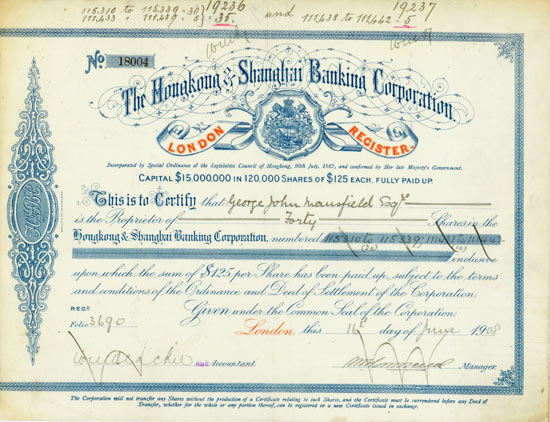 115.310 to 115.339 . 30 19236
111.433 " 111.437 . 5 35. and 111,438 to 111,442 . 5 19237
No. 18004
The Hongkong & Shanghai Banking Corporation.
LONDON REGISTER.
Incorporated by Special Ordinance of the Legislative Council of Hongkong, 20th July, 1867, and confirmed by Her late Majesty's Government.
CAPITAL $15,000,000 IN 120,000 SHARES OF $125 EACH, FULLY PAID UP.
This is to Certify that George John Mansfield Esqre
is the Proprietor of Forty Shares in the
Hongkong & Shanghai Banking Corporation, numbered 115310 to 115339,
(30) (10)
inclusive
upon which the sum of $125 per Share has been paid up, subject to the terms
and conditions of the Ordinance and Deed of Settlement of the Corporation.
Given under the Common Seal of the Corporation:
REGD.
Folio 3690
London, this 16th day of June 1908
Sub Accountant.
Manager.
The Corporation will not transfer any Shares without the production of a Certificate relating to such Shares, and the Certificate must be surrendered before any Deed of
Transfer, whether for the whole or any portion thereof, can be registered or a new Certificate issued in exchange.